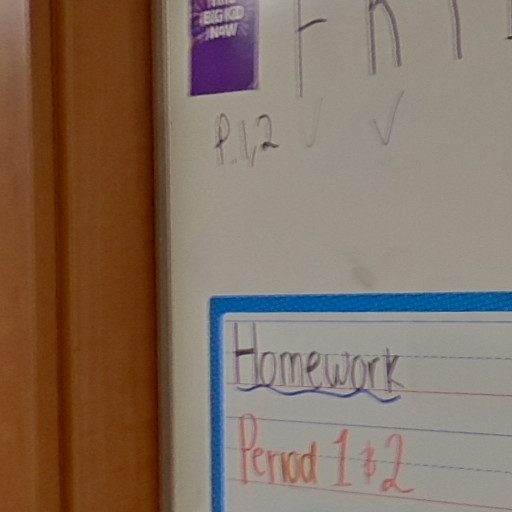 BIG KID
NOW
P. 1, 2 ✓ ✓
Homework
Period 1 & 2